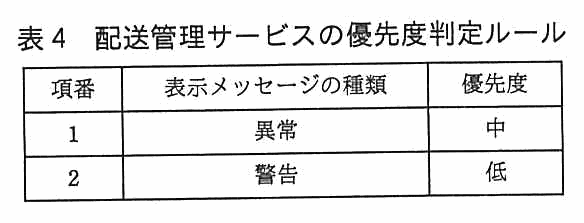 表4 配送管理サービスの優先度判定ルール
項番 表示メッセージの種類 優先度
1 異常 中
2 警告 低